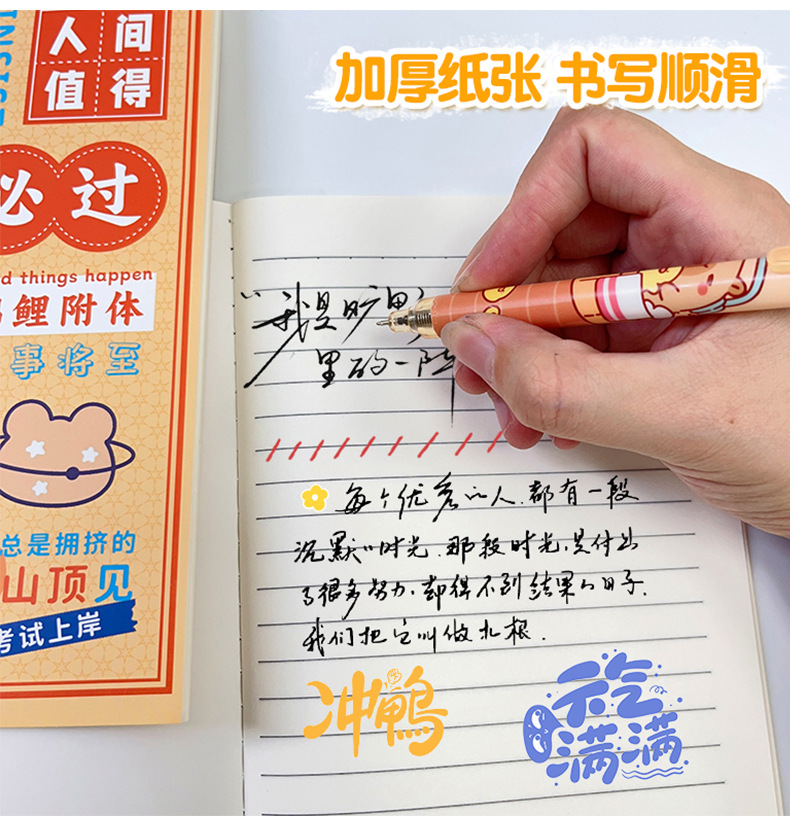 加厚纸张 书写顺滑
人间
值得
必过
things happen
鲤附体
事将至
总是拥挤的
山顶见
考试上岸
“我是旷
里的一
每个优秀的人,都有一段
沉默的时光.那段时光,是付出
了很多努力,却得不到结果的日子.
我们把它叫做扎根.
冲鸭
元气
满满